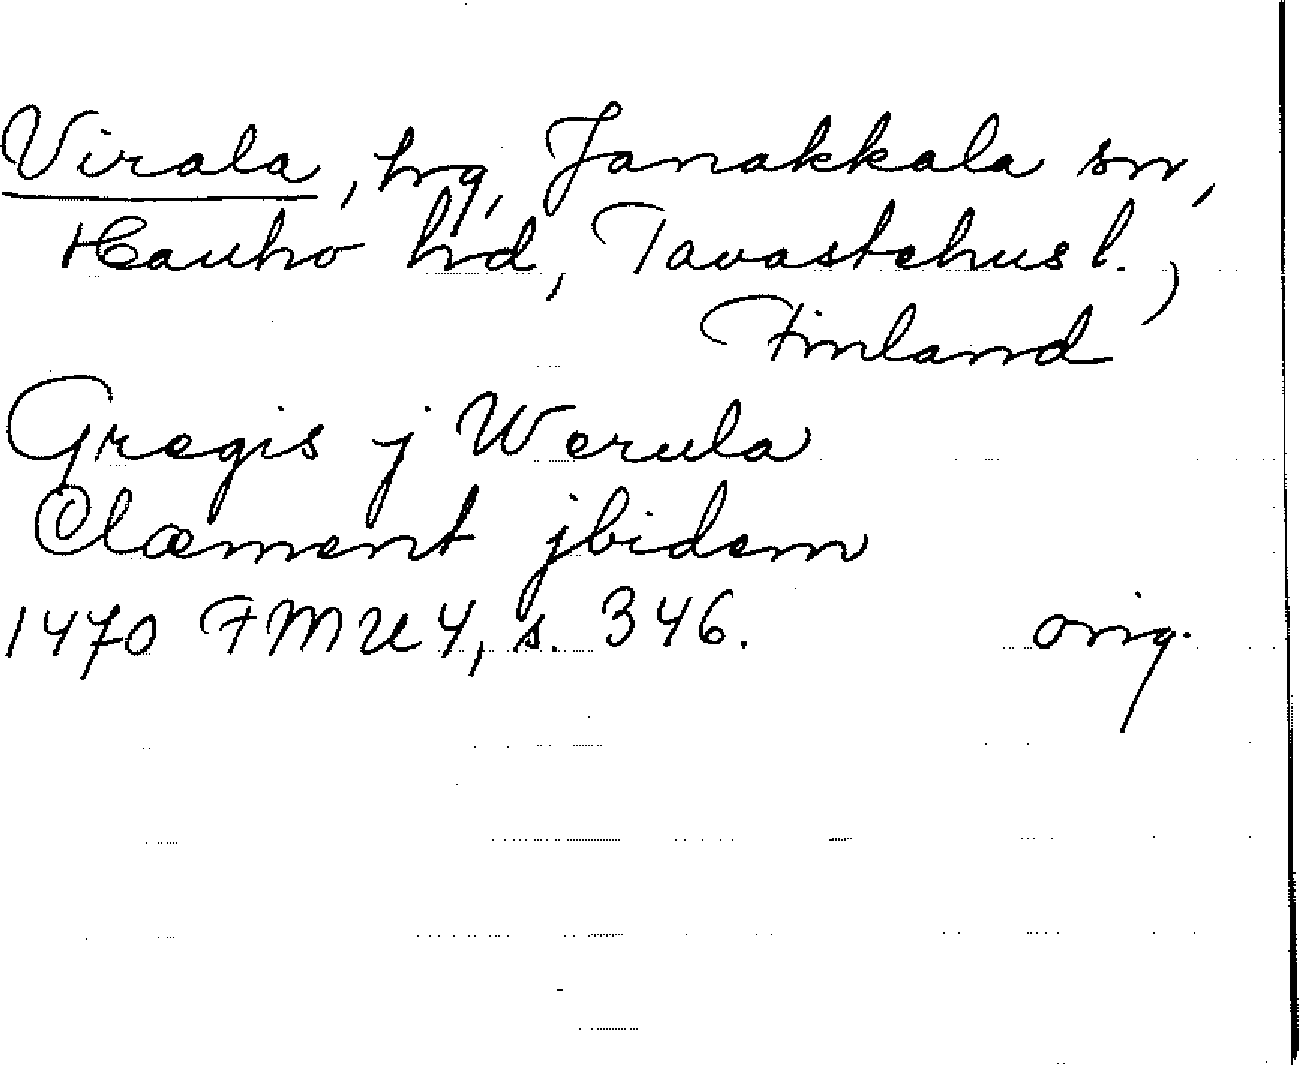 Virala, hrg, Janakkala sn,
Hauho hrd, Tavastehus l.,
Finland
Gregis j Werula
Clæment jbidem
1470 FMU 4, s. 346. orig.